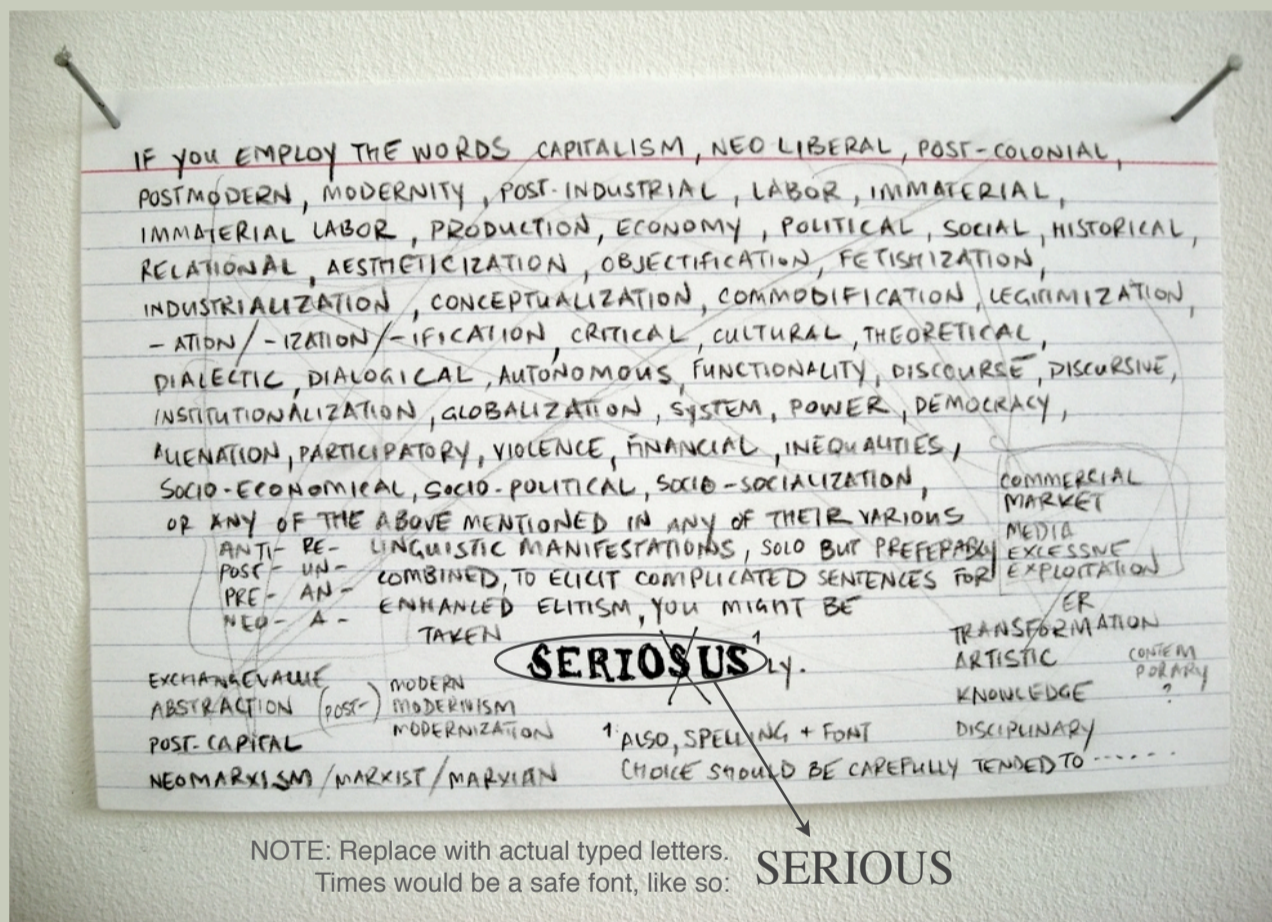 IF YOU EMPLOY THE WORDS CAPITALISM, NEO LIBERAL, POST-COLONIAL,
POSTMODERN, MODERNITY, POST-INDUSTRIAL, LABOR, IMMATERIAL,
IMMATERIAL LABOR, PRODUCTION, ECONOMY, POLITICAL, SOCIAL, HISTORICAL,
RELATIONAL, AESTHETICIZATION, OBJECTIFICATION, FETISHIZATION,
INDUSTRIALIZATION, CONCEPTUALIZATION, COMMODIFICATION, LEGITIMIZATION,
-ATION/-IZATION/-IFICATION, CRITICAL, CULTURAL, THEORETICAL,
DIALECTIC, DIALOGICAL, AUTONOMOUS, FUNCTIONALITY, DISCOURSE, DISCURSIVE,
INSTITUTIONALIZATION, GLOBALIZATION, SYSTEM, POWER, DEMOCRACY,
ALIENATION, PARTICIPATORY, VIOLENCE, FINANCIAL, INEQUALITIES,
SOCIO-ECONOMICAL, SOCIO-POLITICAL, SOCIO-SOCIALIZATION,
OR ANY OF THE ABOVE MENTIONED IN ANY OF THEIR VARIOUS
LINGUISTIC MANIFESTATIONS, SOLO BUT PREFERABLY
COMBINED, TO ELICIT COMPLICATED SENTENCES FOR
ENHANCED ELITISM, YOU MIGHT BE
TAKEN
SERIOSUS¹LY.
ANTI- RE-
POST- UN-
PRE- AN-
NEO- A-
COMMERCIAL
MARKET
MEDIA
EXCESSIVE
EXPLOITATION
ER
TRANSFORMATION
ARTISTIC
KNOWLEDGE
DISCIPLINARY
CONTEM
PORARY
?
EXCHANGE VALUE
ABSTRACTION
POST-CAPITAL
NEOMARXISM/MARXIST/MARXIAN
(POST-)
MODERN
MODERNISM
MODERNIZATION
1. ALSO, SPELLING + FONT
CHOICE SHOULD BE CAREFULLY TENDED TO ......
NOTE: Replace with actual typed letters.
Times would be a safe font, like so:
SERIOUS